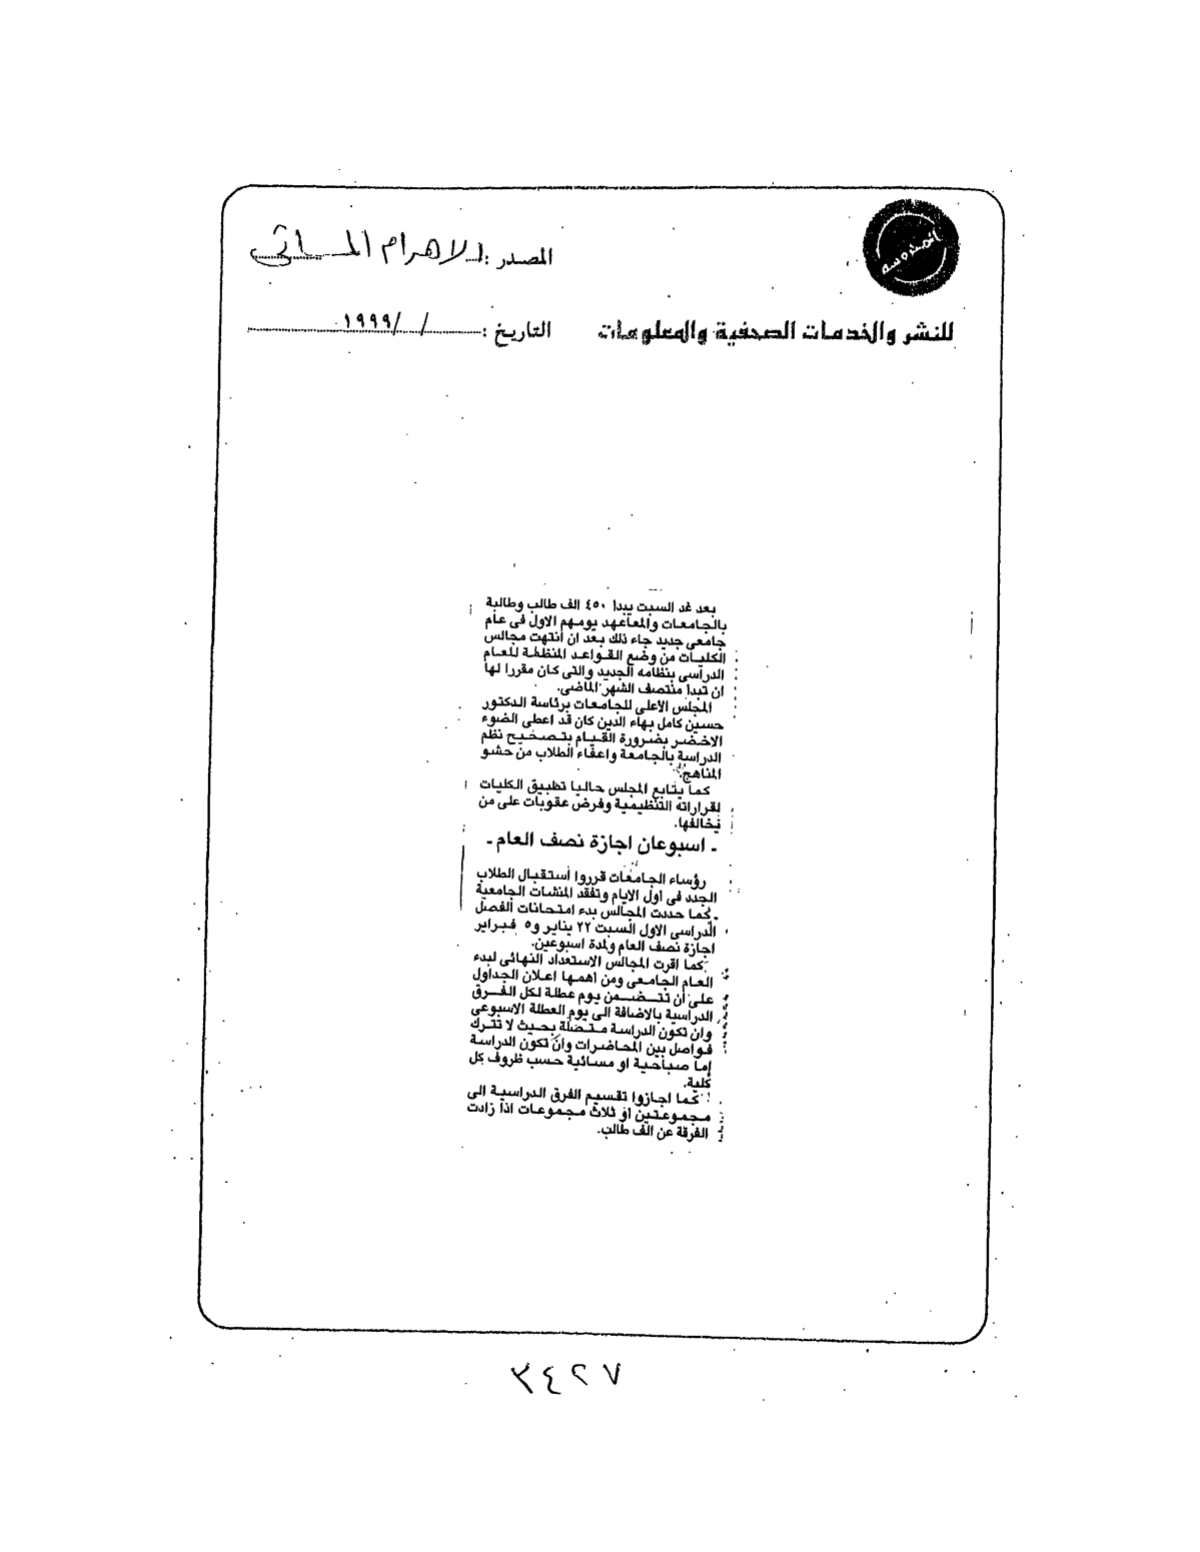 المصدر : الاهرام المسائي
للنشر والخدمات الصحفية والمعلومات
التاريخ : / /١٩٩٩
بعد غد السبت يبدا ٤٥٠ الف طالب وطالبة
بالجامعات والمعاهد يومهم الاول فى عام
جامعى جديد جاء ذلك بعد ان انتهت مجالس
الكليات من وضع القواعد المنظمة للعام
الدراسى بنظامه الجديد والتى كان مقررا لها
ان تبدا منتصف الشهر الماضى.
المجلس الاعلى للجامعات برئاسة الدكتور
حسين كامل بهاء الدين كان قد اعطى الضوء
الاخضر بضرورة القيام بتصحيح نظم
الدراسة بالجامعة واعفاء الطلاب من حشو
المناهج.
كما يتابع المجلس حاليا تطبيق الكليات
لقراراته التنظيمية وفرض عقوبات على من
يخالفها.
ـ اسبوعان اجازة نصف العام ـ
رؤساء الجامعات قرروا أستقبال الطلاب
الجدد فى اول الايام وتفقد المنشات الجامعية
ـ كما حددت المجالس بدء امتحانات الفصل
الدراسى الاول السبت ٢٢ يناير و٥ فبراير
اجازة نصف العام ولمدة اسبوعين.
كما اقرت المجالس الاستعداد النهائى لبدء
العام الجامعى ومن اهمها اعلان الجداول
على أن تتضمن يوم عطلة لكل الفرق
الدراسية بالاضافة الى يوم العطلة الاسبوعى
وان تكون الدراسة متصلة بحيث لا تترك
فواصل بين المحاضرات وان تكون الدراسة
إما صباحية او مسائية حسب ظروف كل
كلية.
كما اجازوا تقسيم الفرق الدراسية الى
مجموعتين او ثلاث مجموعات اذا زادت
الفرقة عن الف طالب.
٣٤٢٧